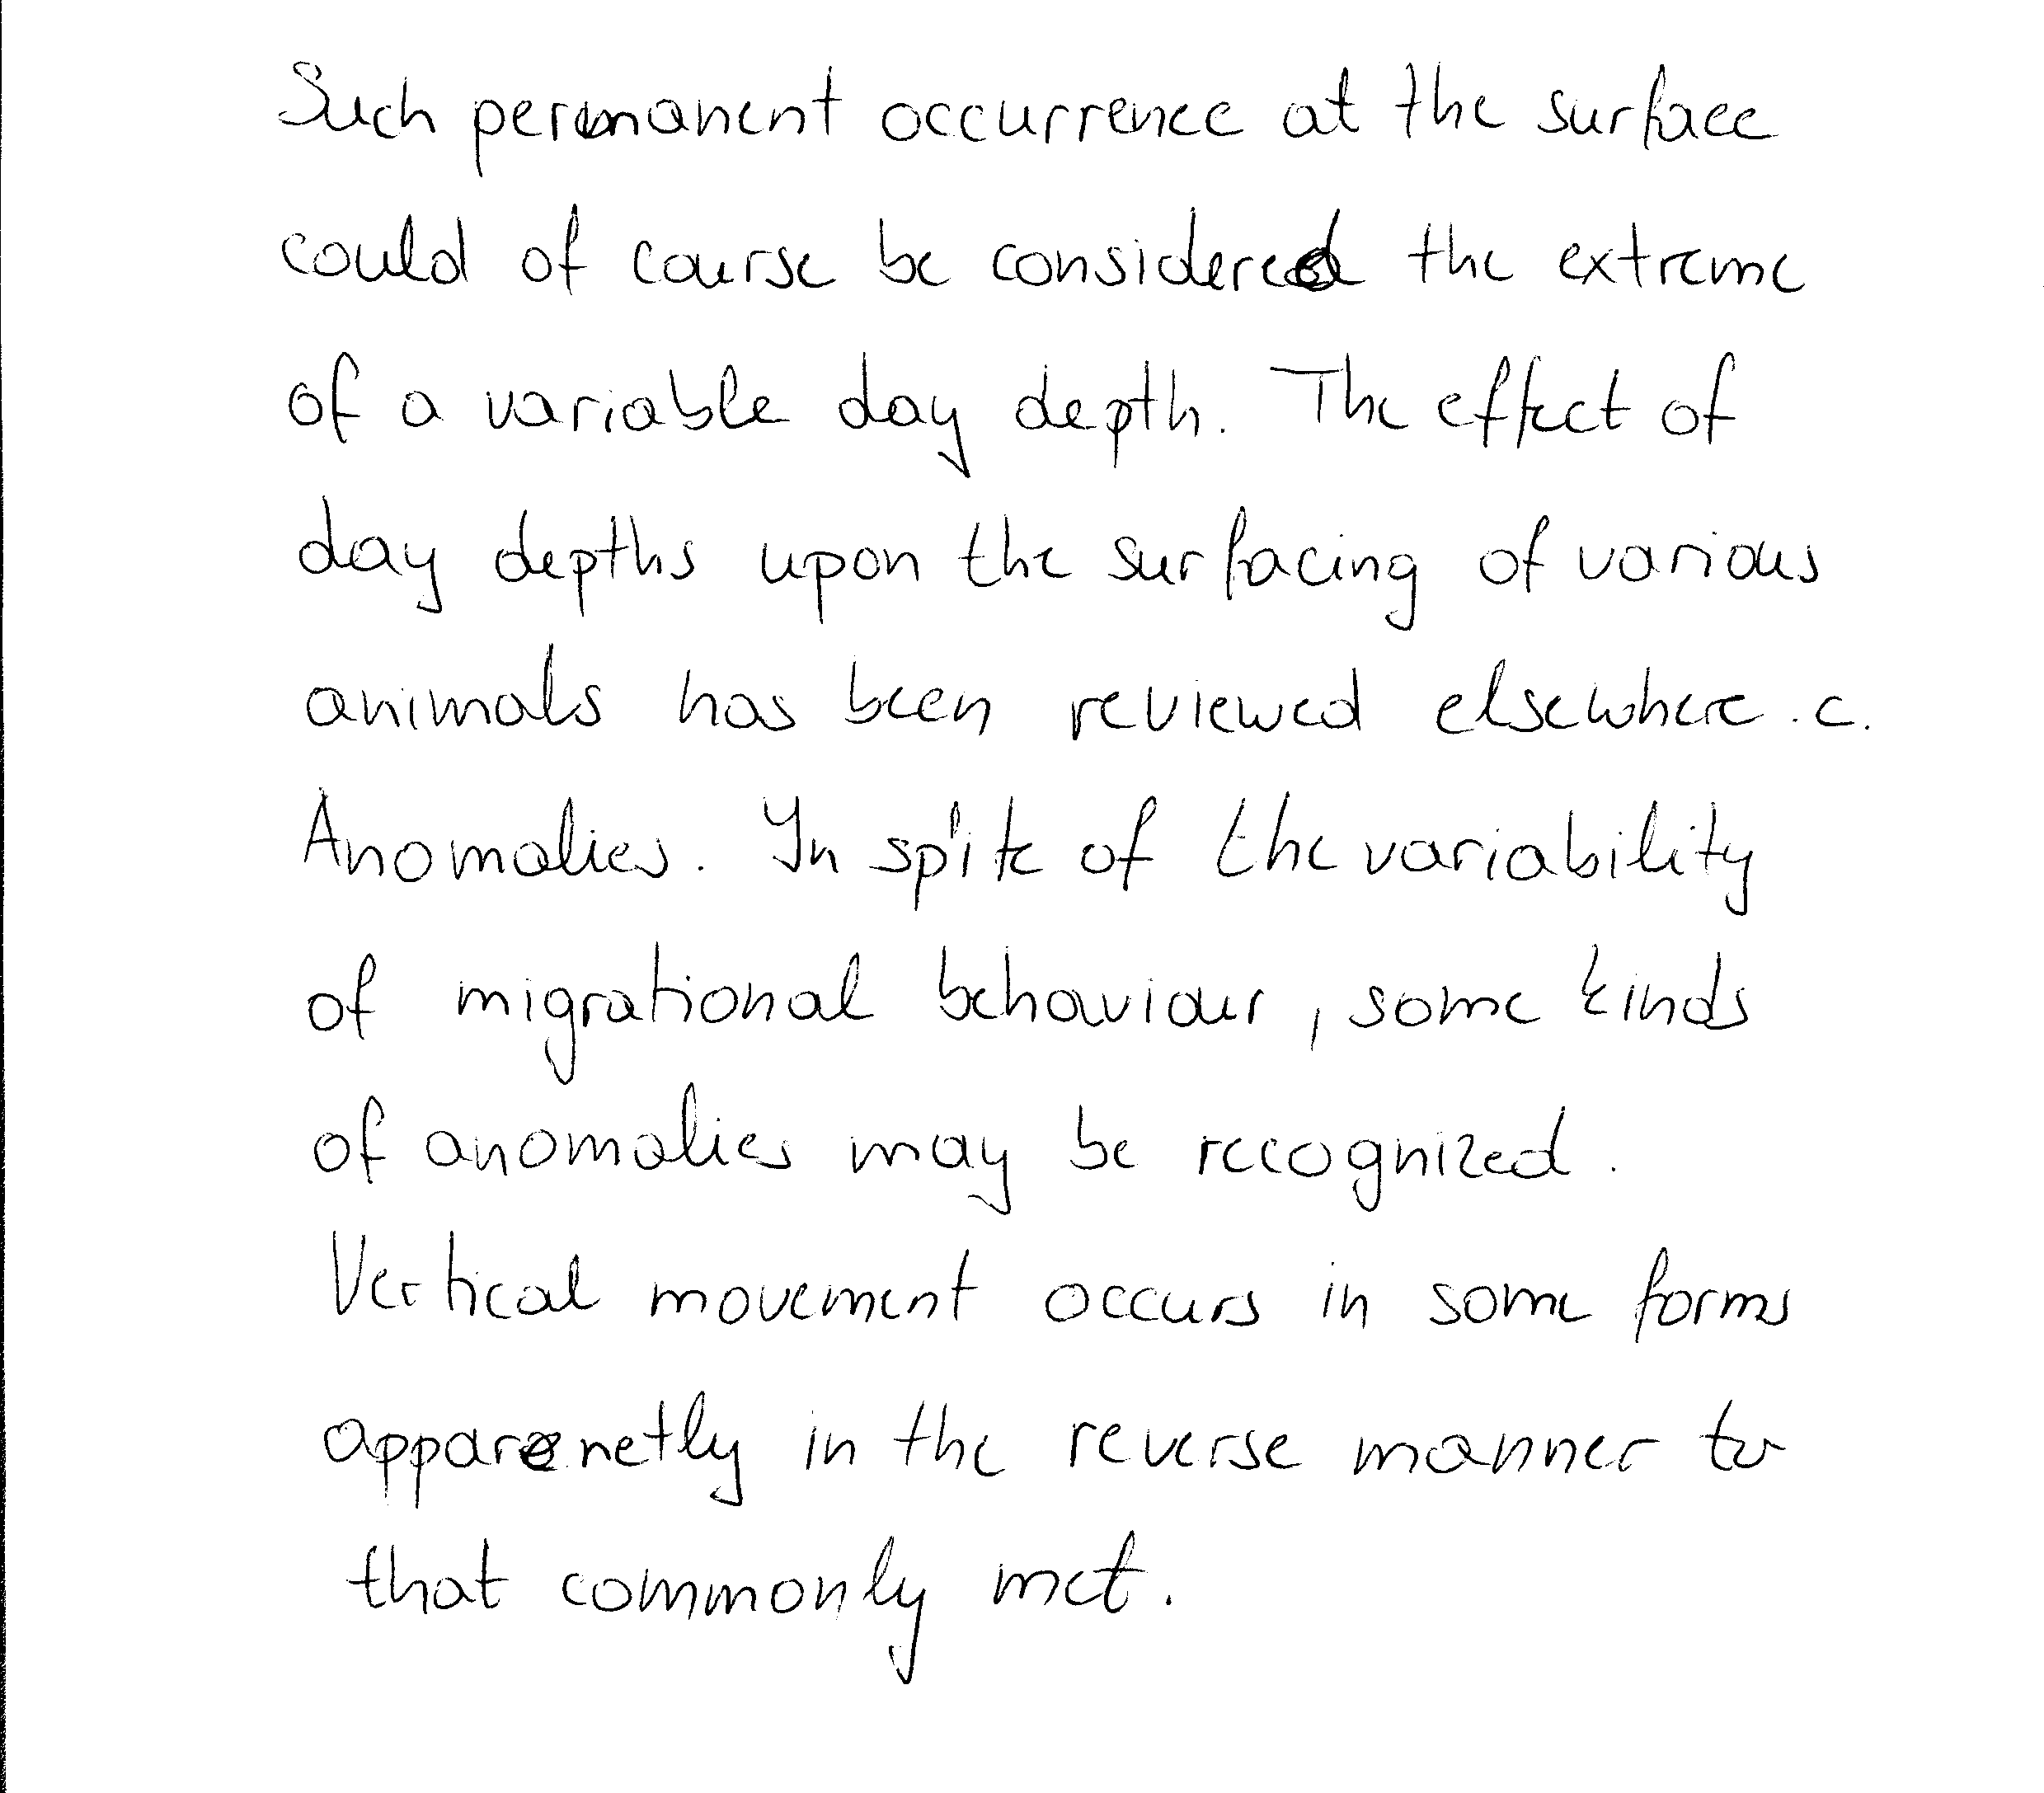 Such permanent occurrence at the surface
could of course be considered the extreme
of a variable day depth. The effect of
day depths upon the surfacing of various
animals has been reviewed elsewhere. c.
Anomalies. In spite of the variability
of migrational behaviour, some kinds
of anomalies may be recognized.
Vertical movement occurs in some forms
apparenetly in the reverse manner to
that commonly met.